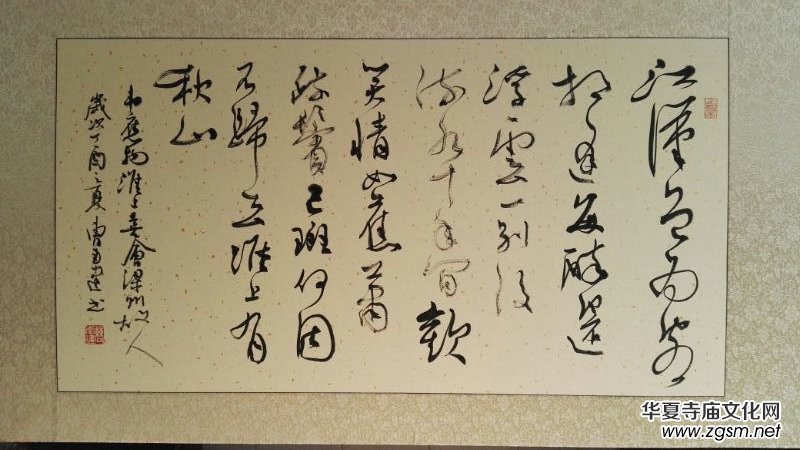 江漢曾为客
相逢每醉還
浮雲一别後
流水十年间歡
笑情如舊蕭
疏鬢已斑何因
不歸去淮上有
秋山
韦應物淮上喜會梁州故人
歲次丁酉之夏曹书
华夏寺庙文化网
www.zgsm.net